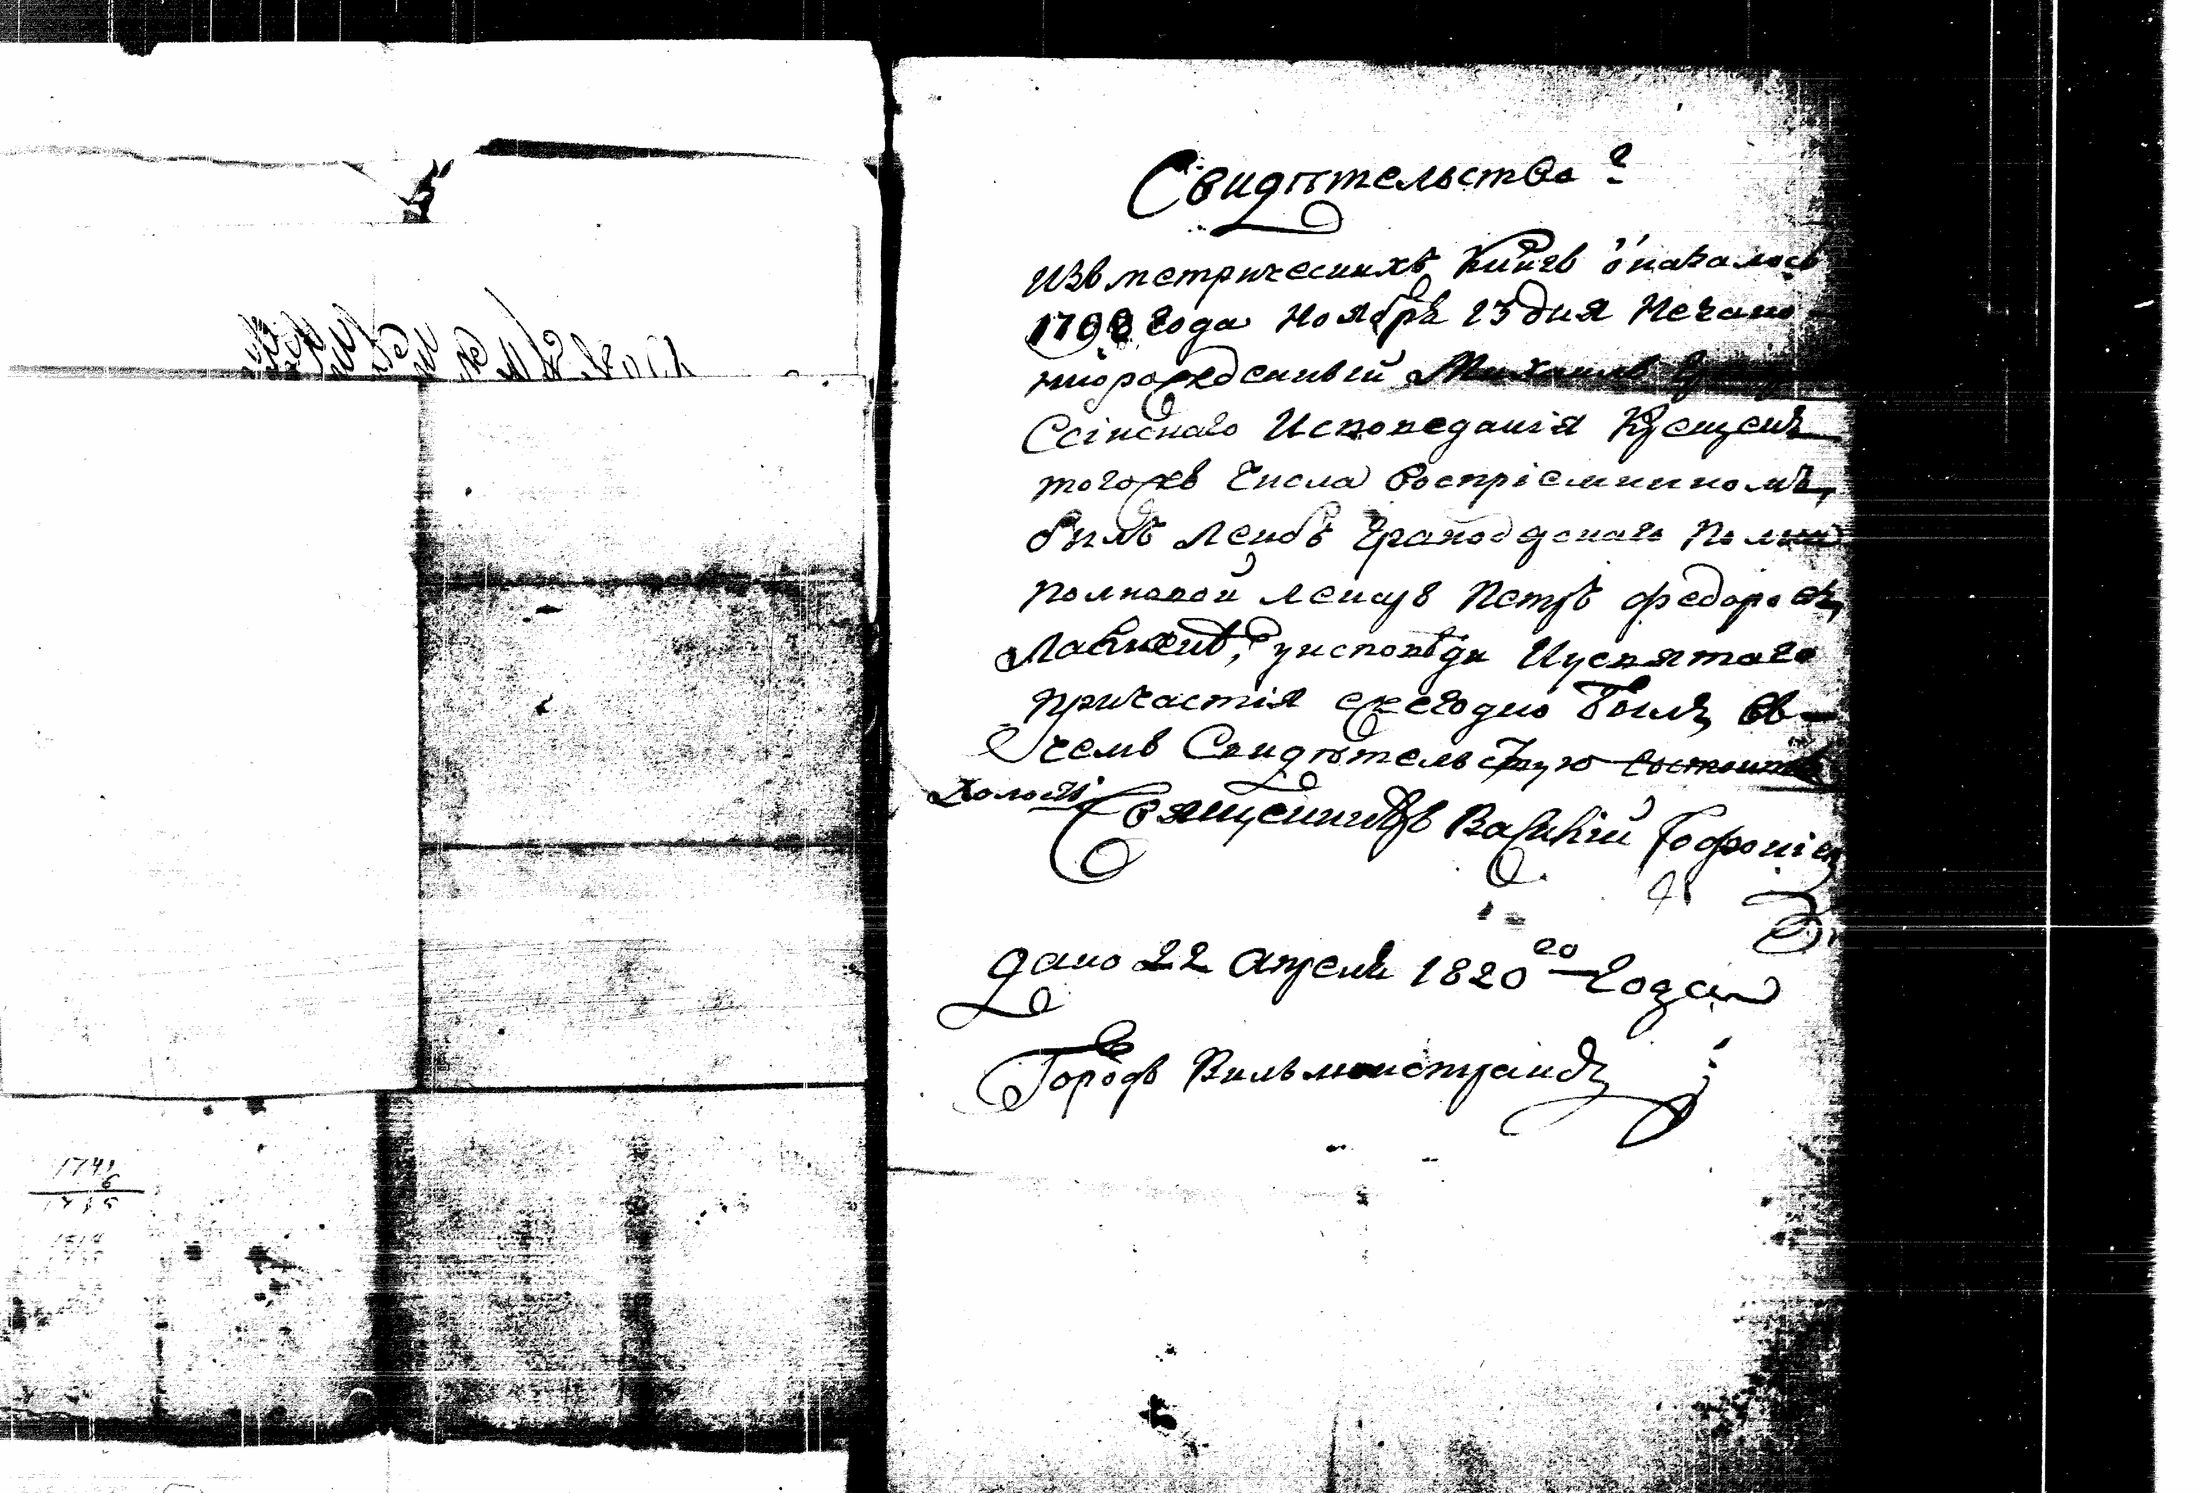 Свидѣтельство
Изъ метрическихъ Книгъ оказалось
1798 года Ноября 13 дня Нечаян-
норожденный Михаилъ
Ссійскаго Исповеданія Крещенъ
тогожъ числа воспріемникомъ
былъ Лейбъ Гранодерскаго Полка
полковой лекарь Петръ Федоровъ
уисповѣди Иусвятаго
причастія ежегодно былъ въ
чемъ Свидѣтельствую
Священникъ Василій
Дано 22 апреля 1820 20 года
Городъ Вильманстрандъ
1741
6